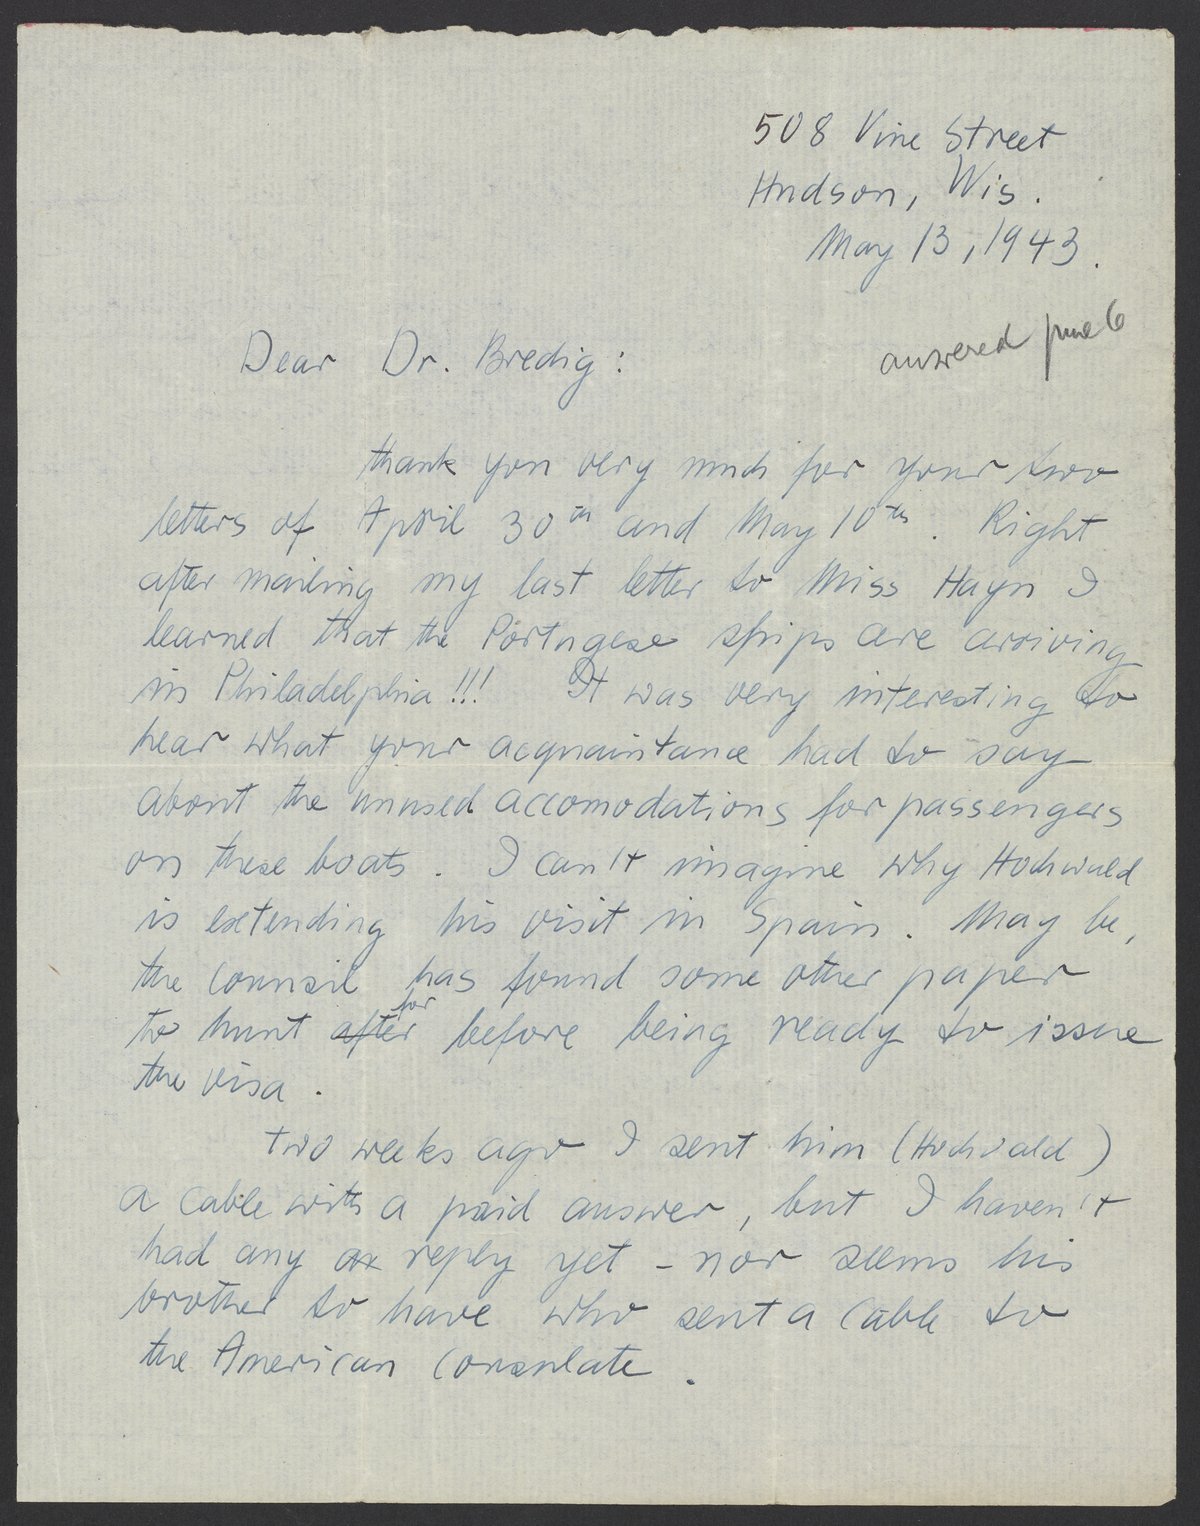 508 Vine Street
Hudson, Wis.
May 13, 1943.
answered June 6
Dear Dr. Bredig:
thank you very much for your two
letters of April 30th and May 10th. Right
after mailing my last letter to Miss Hayn I
learned that the Portugese ships are arriving
in Philadelphia!!! It was very interesting to
hear what your acquaintance had to say
about the unused accomodations for passengers
on these boats. I can't imagine why Hochwald
is extending his visit in Spain. May be,
the counsil has found some other paper
to hunt after for before being ready to issue
the visa.
two weeks ago I sent him (Hochwald)
a cable with a paid answer, but I haven't
had any reply yet - nor seems his
brother to have who sent a cable to
the American Consulate.